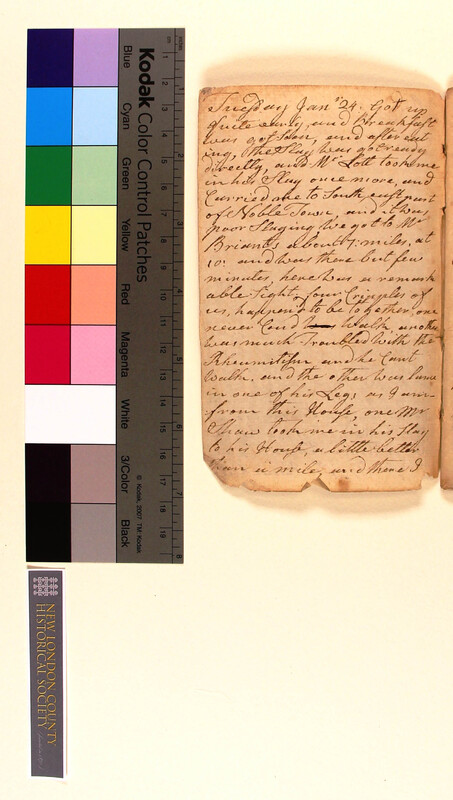 Kodak Color Control Patches
Blue
Cyan
Green
Yellow
Red
Magenta
White
3/Color
Black
© Kodak, 2007 TM: Kodak
NEW LONDON COUNTY
HISTORICAL SOCIETY
Tuesday Jan: 24. Got up
quite early, and Breakfast
was got soon, and after eat
ing, the Slay was got ready
directly, and Mr Lott took me
in his Slay once more, and
Carried me to South, east part
of Noble Town, and it was
poor Slaying, we got to Mr
Briants about 7: miles, at
10: and was there but few
minutes, here was a remark
able Sight, four Cripples of
us, happend to be together, one
never Coud walk, another
was much Troubled with the
Rheumitism and he Cant
walk, and the other was lame
in one of his Legs, as I am—
from this House, one Mr
Shaw took me in his Slay
to his House, a little better
than a mile, and there I